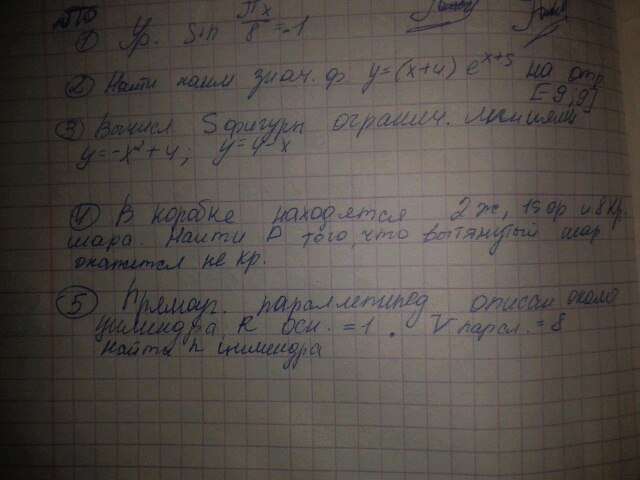 ① Ур. Sin Пx/8 = -1
② Найти наим знач. ф y=(x+4) e^x+5 на отр
[-9;9]
③ Вычисл S фигуры огранич. линиями
y=-x²+4; y=4-x
④ В коробке находятся 2 ж, 15 ор и 8 кр.
шара. Найти P того, что вытянутый шар
окажится не кр.
⑤ Прямоуг. параллепипед описан около
цилиндра R осн. =1. V парал. = 8
найти h цилиндра